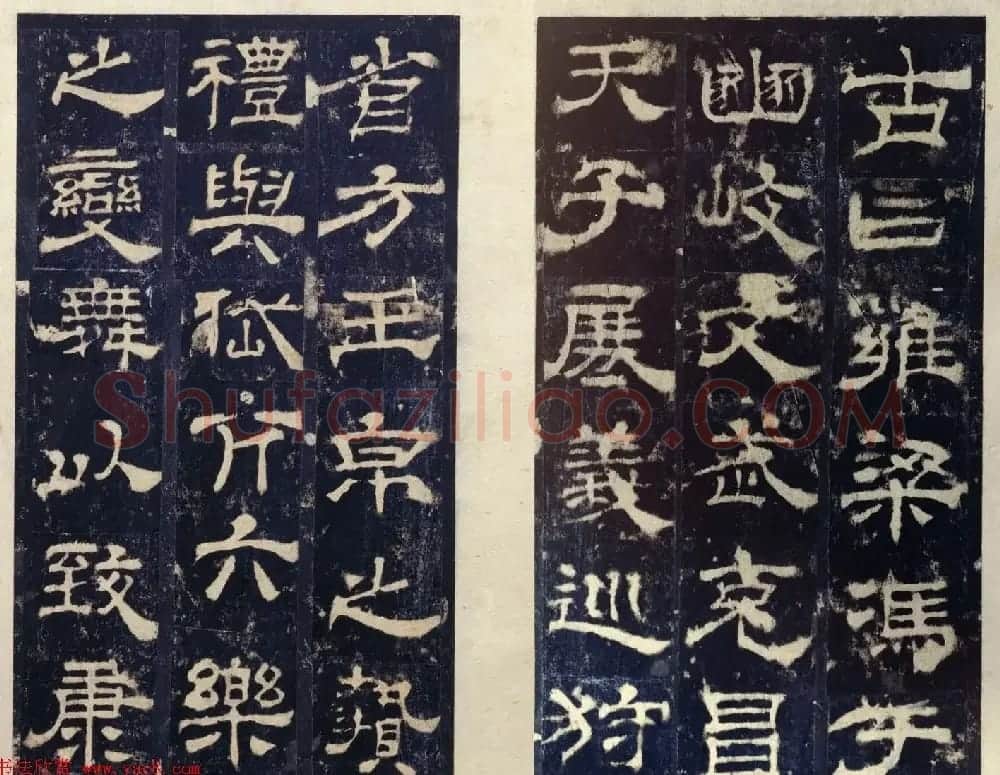 古曰雍梁馮于
豳岐文武克昌
天子展義巡狩
省方玉帛之贄
禮與岱亢六樂
之變舞以致康
Shufaziliao.COM
书法欣赏 www.yac8.com